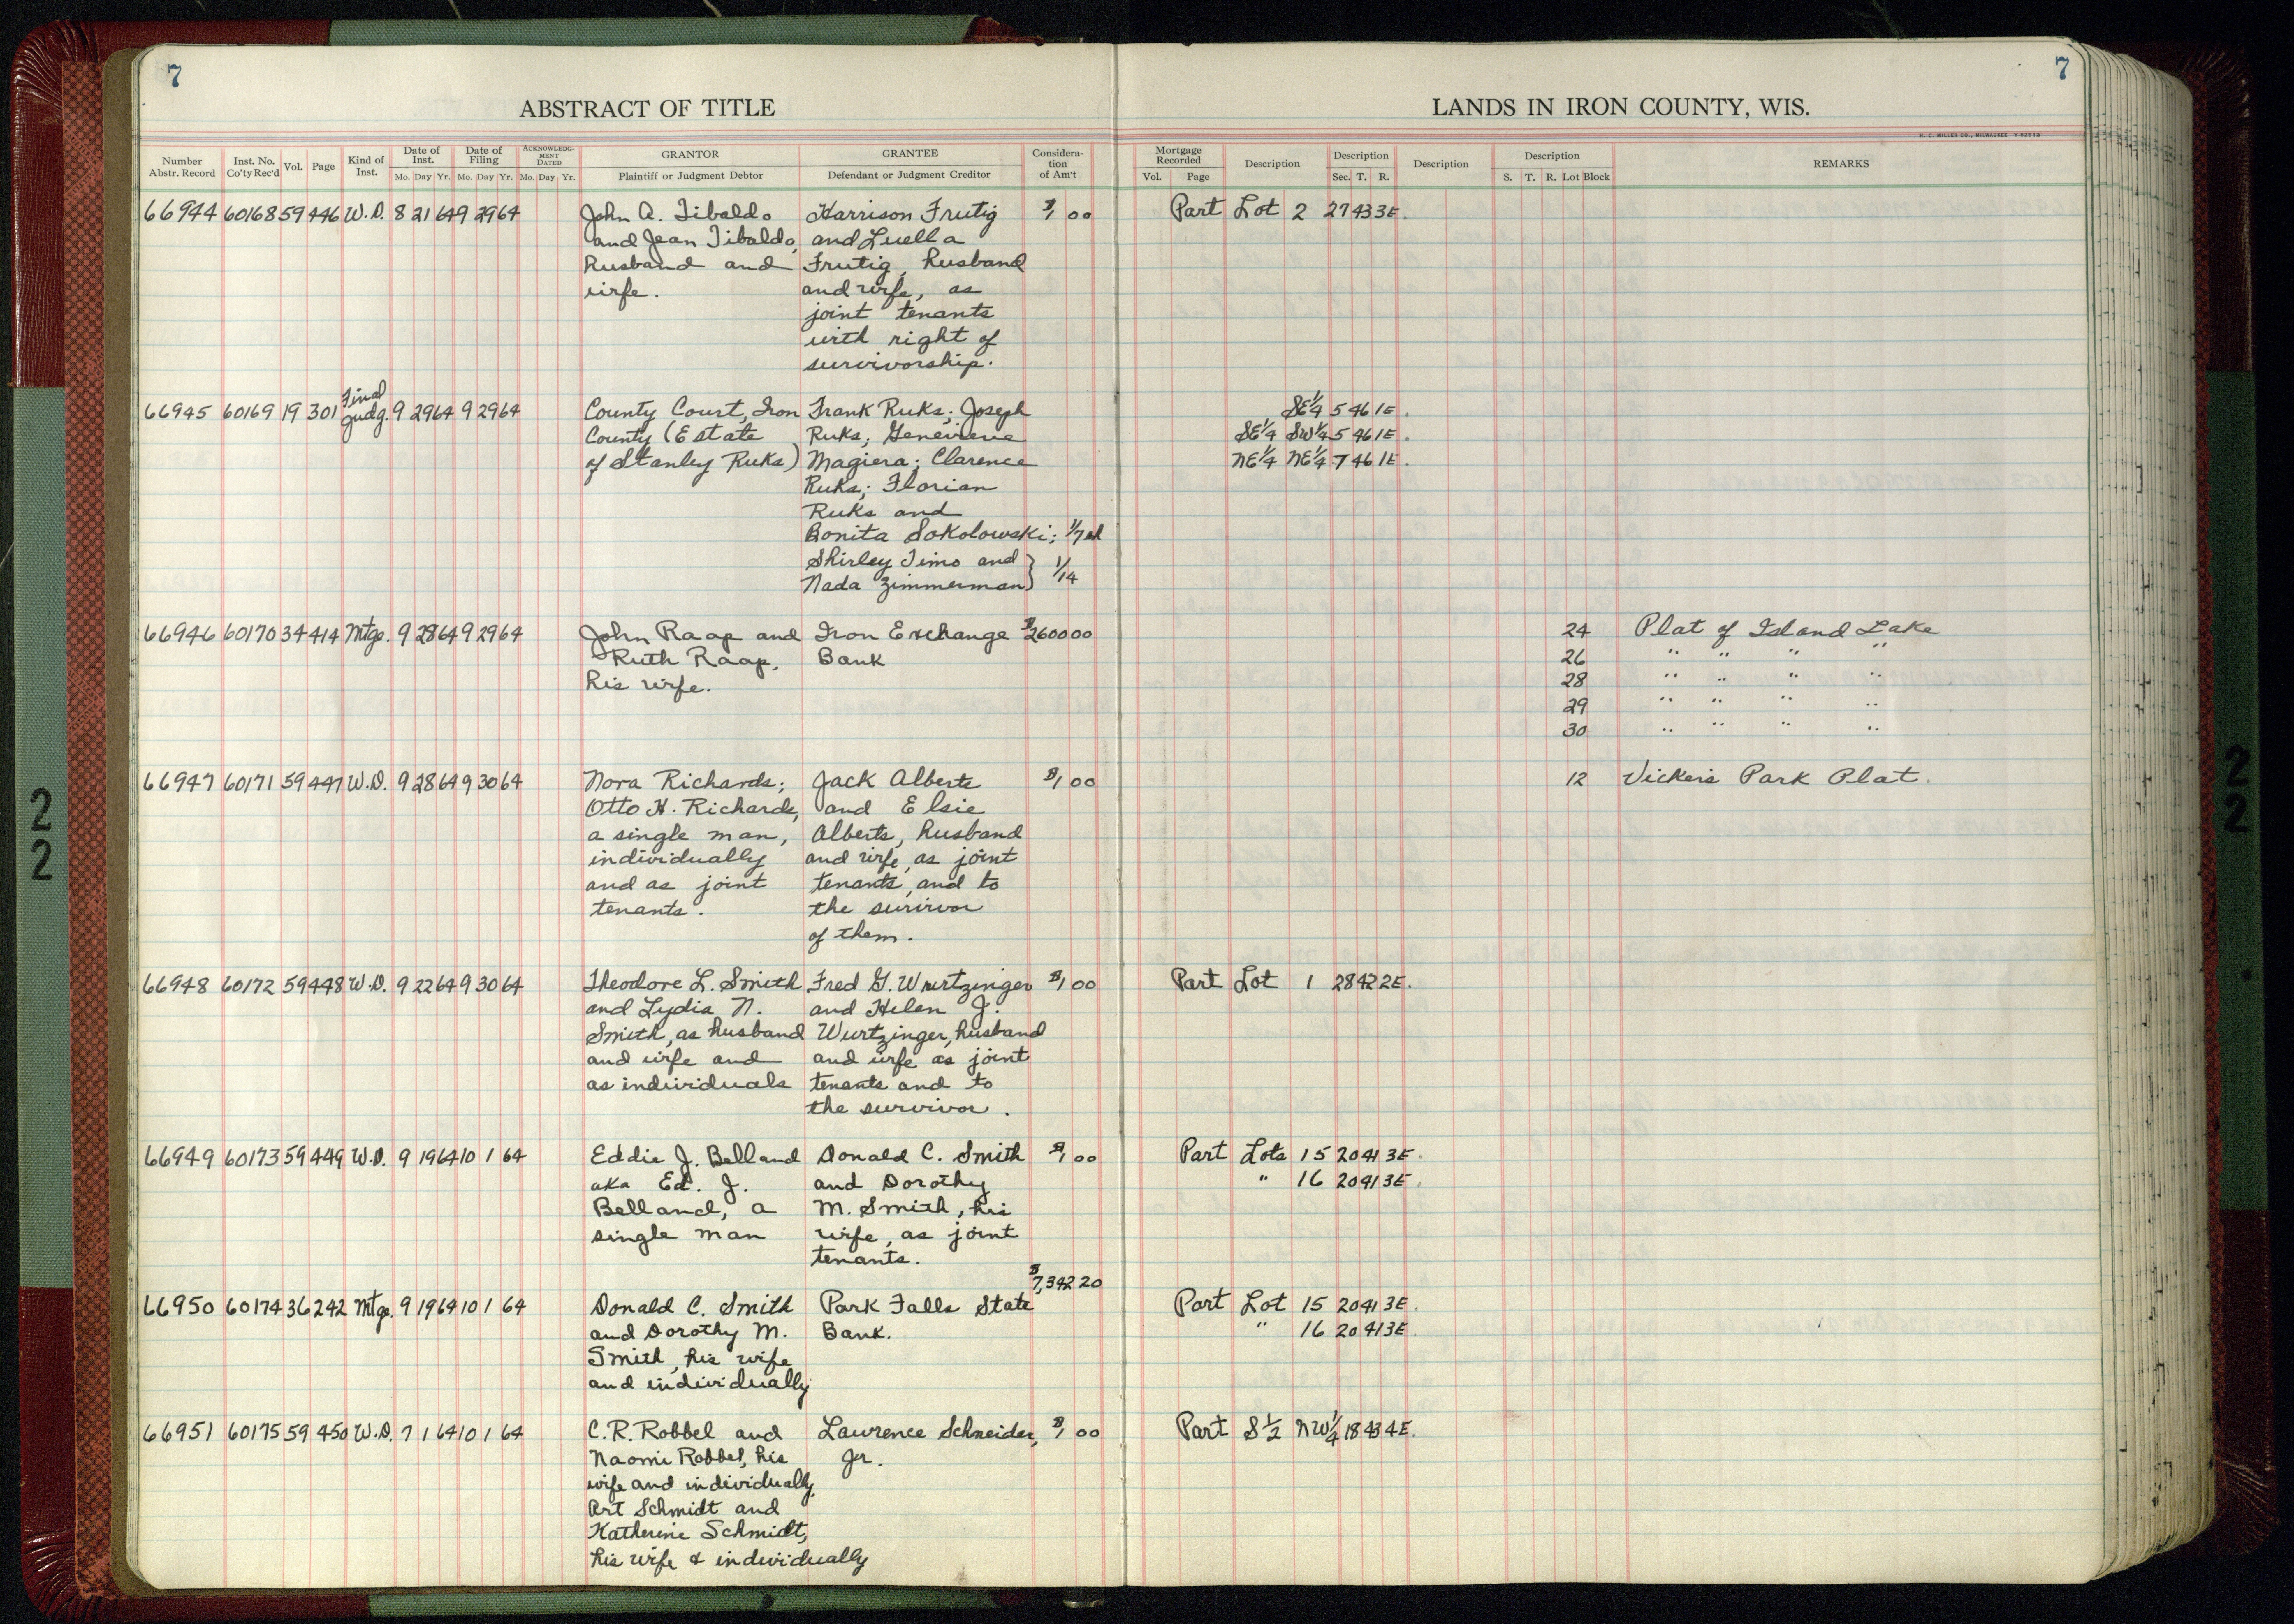 7
7
ABSTRACT OF TITLE
LANDS IN IRON COUNTY, WIS.
H. C. MILLER CO., MILWAUKEE
Number Abstr. Record
Inst. No. Co'ty Rec'd
Vol.
Page
Kind of Inst.
Date of Inst.
Mo. Day Yr.
Date of Filing
Mo. Day Yr.
ACKNOWLEDGMENT DATED
Mo. Day Yr.
GRANTOR
Plaintiff or Judgment Debtor
GRANTEE
Defendant or Judgment Creditor
Consideration of Am't
Mortgage Recorded
Vol. Page
Description
Description
Sec. T. R.
Description
Description
S. T. R. Lot Block
REMARKS
66944 60168 59 446 W.D. 8 21 64 9 29 64 John A. Tibaldo Harrison Frutig $1 00 Part Lot 2 27 43 3E.
and Jean Tibaldo, and Luella
husband and Frutig, husband
wife. and wife, as
joint tenants
with right of
survivorship.
66945 60169 19 301 Final Judg. 9 29 64 9 29 64 County Court, Iron Frank Ruks; Joseph SE¼ 5 46 1E.
County (Estate Ruks; Genevieve SE¼ SW¼ 5 46 1E.
of Stanley Ruks) Magiera; Clarence NE¼ NE¼ 7 46 1E.
Ruks; Florian
Ruks and
Bonita Sokolowski; 1/7 ea
Shirley Timo and
Nada Zimmerman } 1/14
66946 60170 34 414 Mtge. 9 28 64 9 29 64 John Raap and Iron Exchange $2600 00 24 Plat of Island Lake
Ruth Raap, Bank 26 " " " "
his wife. 28 " " " "
29 " " " "
30 " " " "
66947 60171 59 447 W.D. 9 28 64 9 30 64 Nora Richards; Jack Alberts $1 00 12 Vicker's Park Plat.
Otto H. Richards, and Elsie
a single man, Alberts, husband
individually and wife, as joint
and as joint tenants, and to
tenants. the survivor
of them.
66948 60172 59 448 W.D. 9 22 64 9 30 64 Theodore L. Smith Fred G. Wurtzinger $1 00 Part Lot 1 28 42 2E.
and Lydia N. and Helen J.
Smith, as husband Wurtzinger, husband
and wife and and wife as joint
as individuals tenants and to
the survivor.
66949 60173 59 449 W.D. 9 19 64 10 1 64 Eddie J. Belland Donald C. Smith $1 00 Part Lots 15 20 41 3E.
aka Ed. J. and Dorothy " 16 20 41 3E.
Belland, a M. Smith, his
single man wife, as joint
tenants.
$7,342 20
66950 60174 36 242 Mtge. 9 19 64 10 1 64 Donald C. Smith Park Falls State Part Lot 15 20 41 3E.
and Dorothy M. Bank. " 16 20 41 3E.
Smith, his wife
and individually
66951 60175 59 450 W.D. 7 1 64 10 1 64 C.R. Robbel and Lawrence Schneider, $1 00 Part S½ NW¼ 18 43 4E.
Naomi Robbel, his Jr.
wife and individually,
Art Schmidt and
Katherine Schmidt,
his wife & individually
22
22